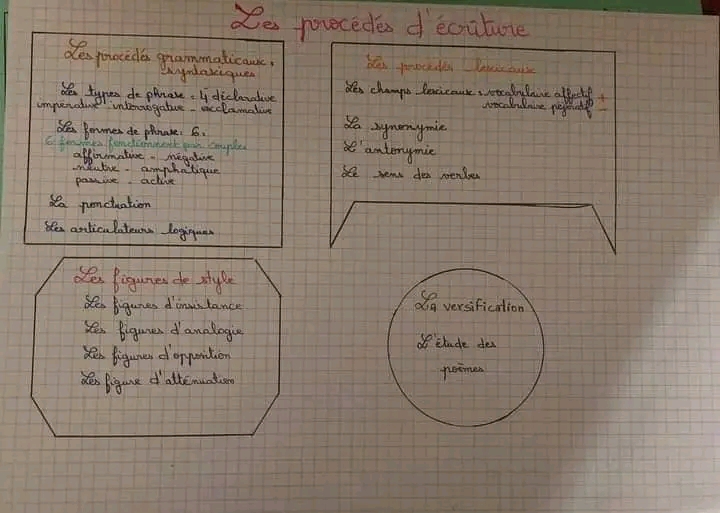 Les procédés d'écriture
Les procédés grammaticaux,
syntaxiques
Les types de phrase : 4 déclarative
impérative - interrogative - exclamative
Les formes de phrase : 6 :
6 formes fonctionnent par couples
affirmative - négative
neutre - amphatique
passive - active
La ponctuation
Les articulateurs logiques
Les procédés lexicaux
Les champs lexicaux : vocabulaire affectif +
vocabulaire péjoratif -
La synonymie
L'antonymie
Le sens des verbes
Les figures de style
Les figures d'insistance
Les figures d'analogie
Les figures d'opposition
Les figure d'atténuation
La versification
L'étude des
poèmes